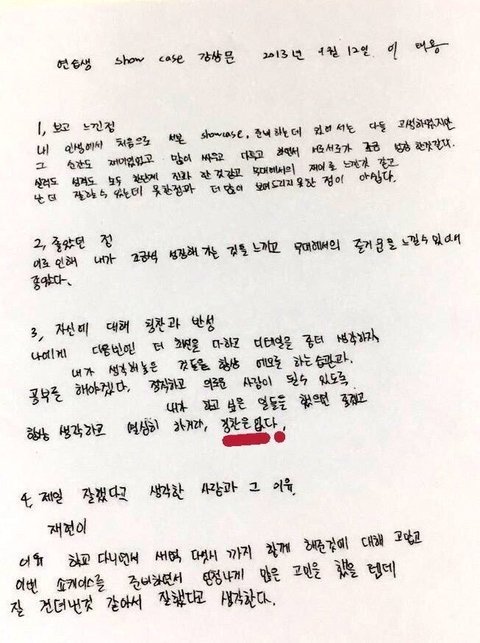 연습생 show case 감상문 2013년 9월 12일 이 태용
1, 보고 느낀점
내 인생에서 처음으로 서본 showcase, 준비하는데 있어서는 다들 고생하였지만
그 순간도 재미있었고 많이 싸우고 다투고 하면서 서로가 조금 성장 한것같다.
실력도 성격도 모두 한단계 진화 한것같고 무대에서의 재미를 느낀것 같고
난 더 잘할수 있는데 못한점과 더 많이 보여드리지 못한 점이 아쉽다.
2, 좋았던 점
이로 인해 내가 조금씩 성장해 가는 것을 느끼고 무대에서의 즐거움을 느낄수 있어
좋았다.
3, 자신에 대해 칭찬과 반성
나에게 다음번엔 더 최선을 다하고 디테일을 좀더 생각하자,
내가 생각해놓은 것들을 항상 메모를 하는 습관과,
공부를 해야겠다. 정직하고 의로운 사람이 될수 있도록
내가 하고 싶은 일들을 했으면 좋겠고
항상 생각하고 열심히 하거라, 칭찬은 없다.
4, 제일 잘했다고 생각한 사람과 그 이유.
재현이
이유 학교 다니면서 새벽 다섯시 까지 함께 해준것에 대해 고맙고
이번 쇼케이스를 준비하면서 많은 고민을 했을 텐데
잘 견뎌낸것 같아서 잘했다고 생각한다.